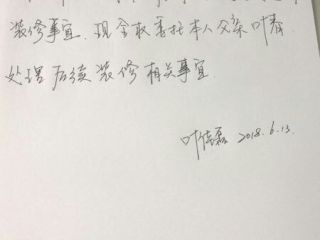 装修事宜.现全权委托本人父亲叶春
处理后续装修有关事宜.
叶信磊 2018.6.13.